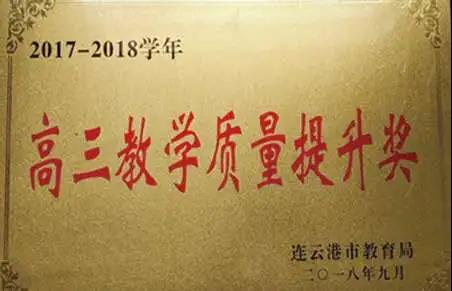 2017-2018学年
高三教学质量提升奖
连云港市教育局
二〇一八年九月